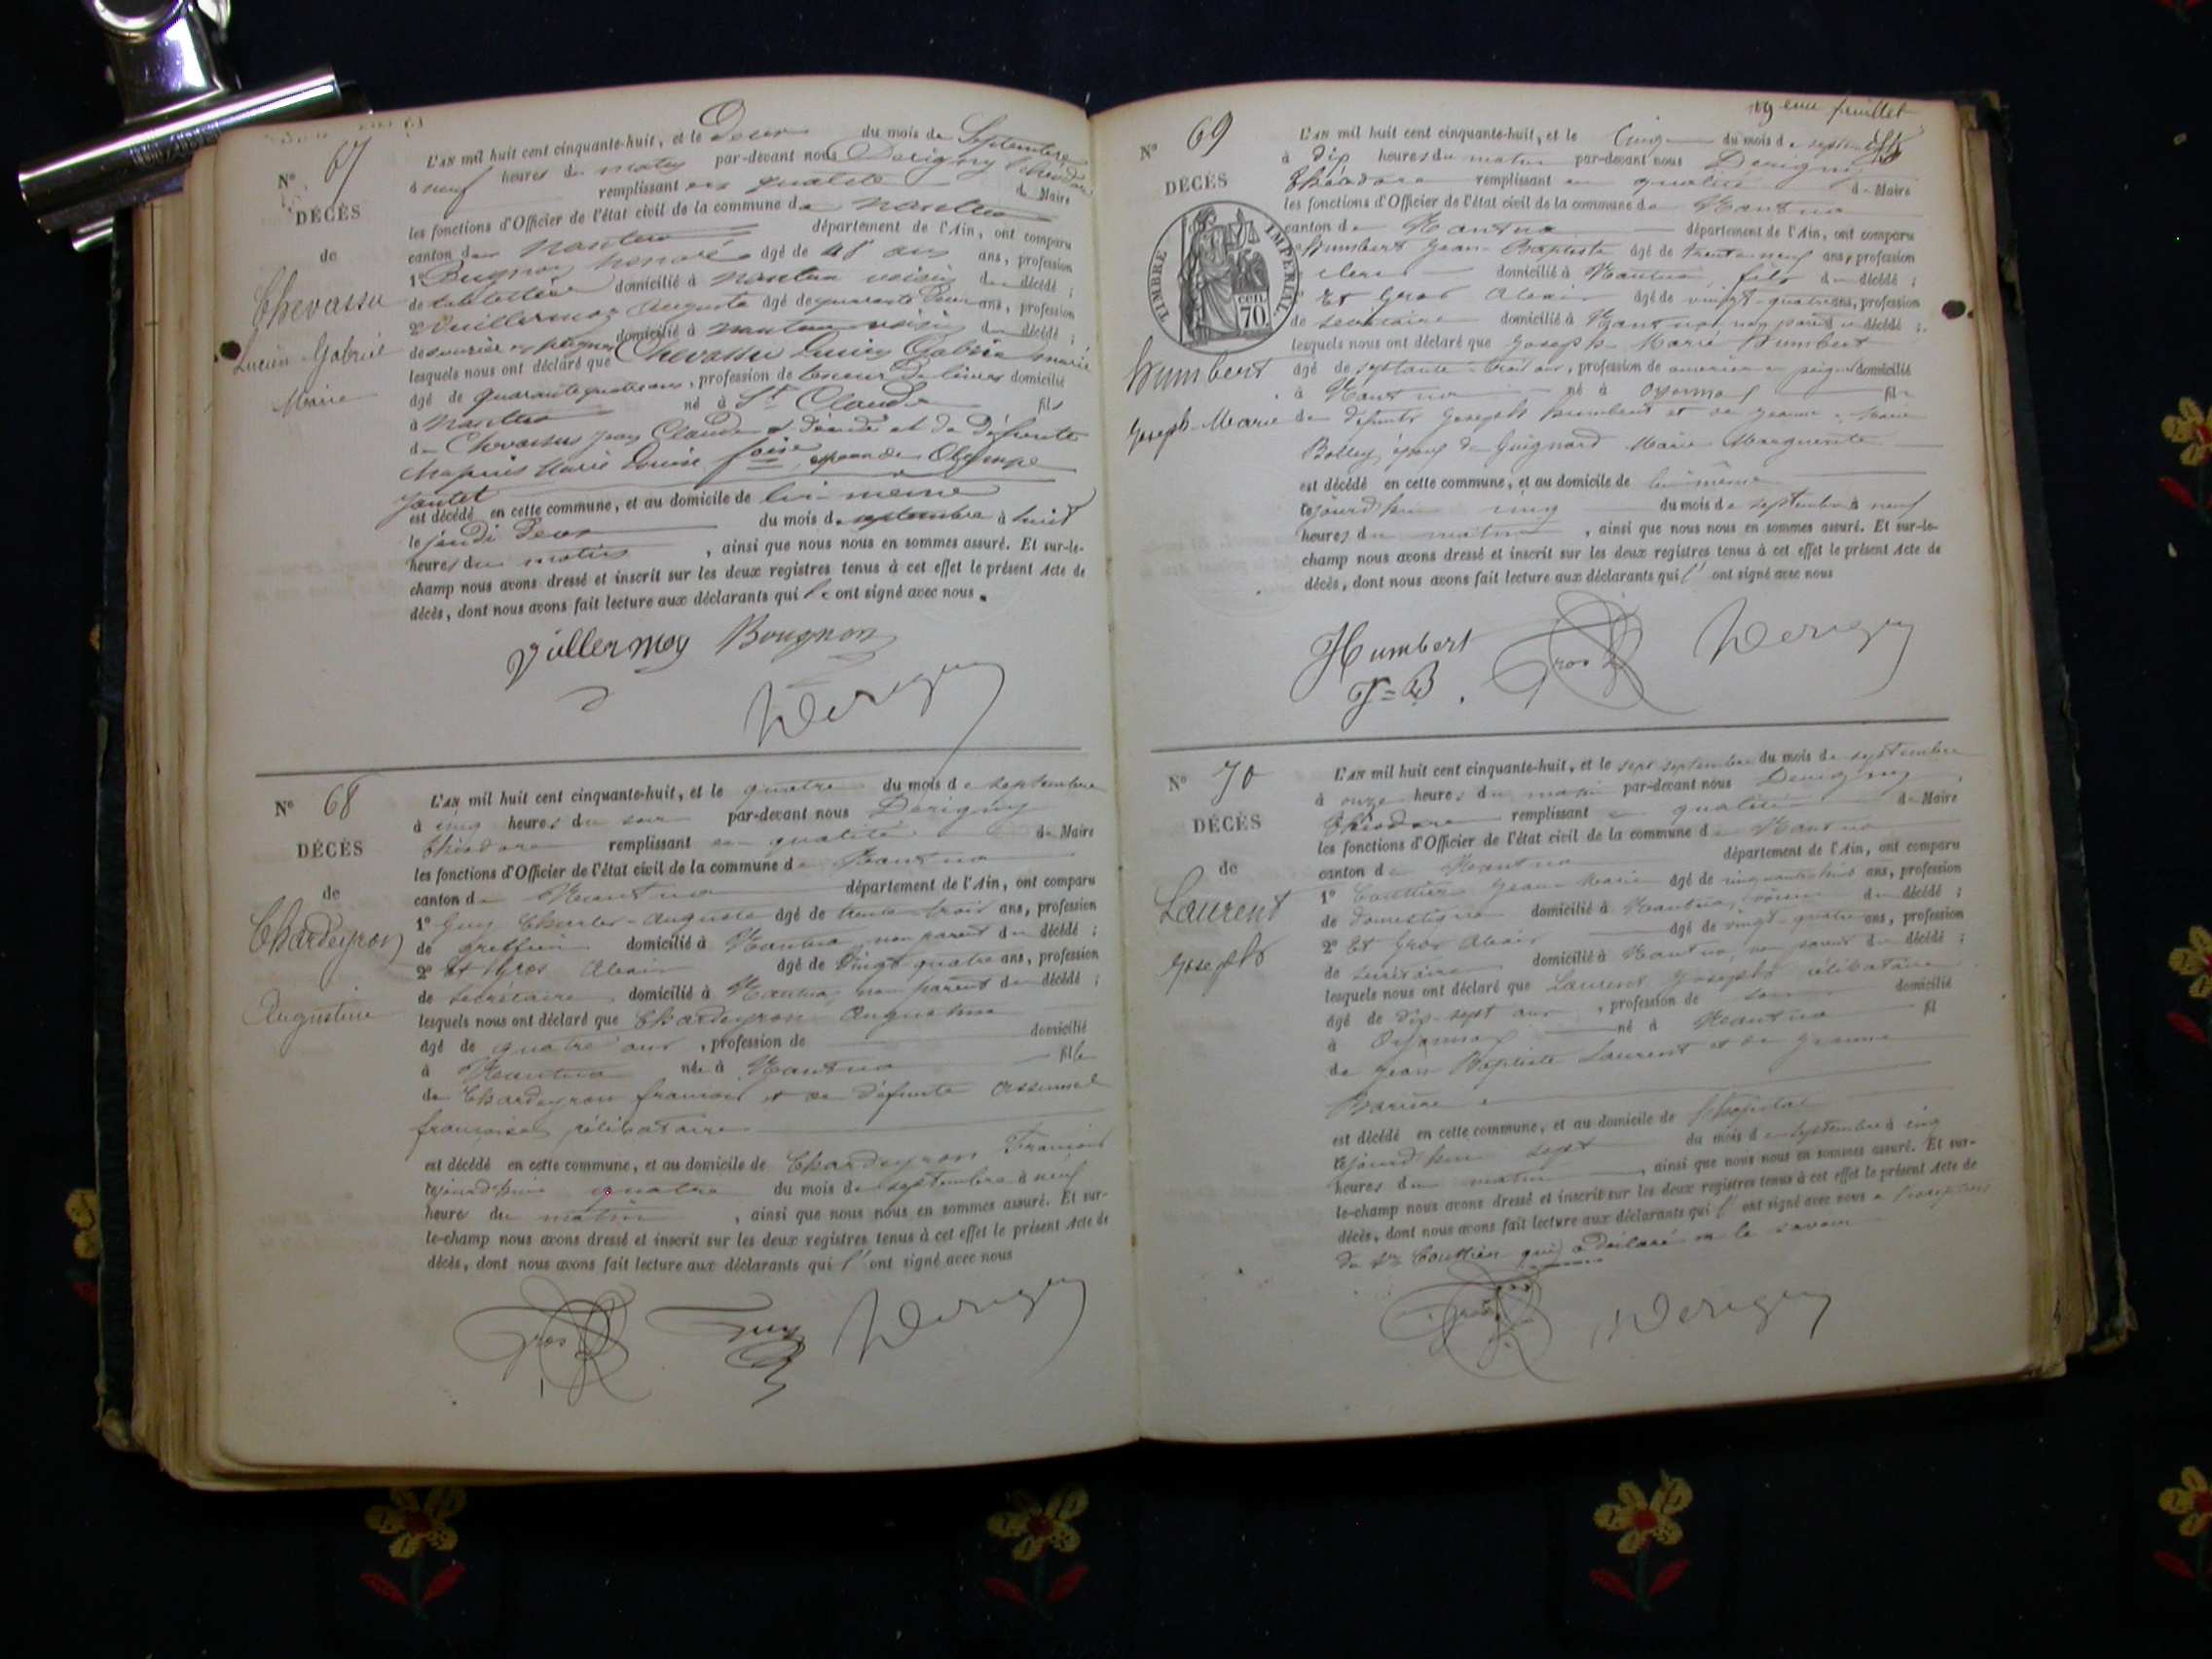 N° 67
DÉCÈS
de
Chevassu
Lucien Gabriel
Marie
L'AN mil huit cent cinquante-huit, et le Deux du mois de Septembre
à neuf heures du matin par-devant nous Derigny Théodore
remplissant en qualité de Maire
les fonctions d'Officier de l'état civil de la commune de Nantua
canton de Nantua département de l'Ain, ont comparu
1° Bugnon honoré âgé de 48 ans ans, profession
de tabletier domicilié à Nantua voisin du décédé ;
2° Vuillermoz Auguste âgé de quarante Deux ans, profession
de ouvrier en peignes domicilié à Nantua voisin du décédé ;
lesquels nous ont déclaré que Chevassu Lucien Gabriel Marie
âgé de quarante quatre ans, profession de teneur de livres domicilié
à Nantua né à St Claude fils
de Chevassus Jean Claude et de défunte
Marie Louise épouse de Olympe
Jantet
est décédé en cette commune, et au domicile de lui-même
le jeudi Deux du mois de septembre à huit
heures du matin, ainsi que nous nous en sommes assuré. Et sur-le-
champ nous avons dressé et inscrit sur les deux registres tenus à cet effet le présent Acte de
décès, dont nous avons fait lecture aux déclarants qui l'ont signé avec nous.
Vuillermoz Bougnon
Derigny
N° 68
DÉCÈS
de
Chardeyron
Augustine
L'AN mil huit cent cinquante-huit, et le quatre du mois de septembre
à cinq heures du soir par-devant nous Derigny
Théodore remplissant en qualité de Maire
les fonctions d'Officier de l'état civil de la commune de Nantua
canton de Nantua département de l'Ain, ont comparu
1° Guy Charles-Auguste âgé de trente trois ans, profession
de greffier domicilié à Nantua, non parent du décédé ;
2° Et Gros Alexis âgé de vingt-quatre ans, profession
de secrétaire domicilié à Nantua, non parent du décédé ;
lesquels nous ont déclaré que Chardeyron Augustine
âgé de quatre ans, profession de domicilié
à Nantua née à Nantua fille
de Chardeyron françois et de défunte
françoise célibataire
est décédé en cette commune, et au domicile de Chardeyron François
cejourd'hui quatre du mois de septembre à neuf
heure du matin, ainsi que nous nous en sommes assuré. Et sur-
le-champ nous avons dressé et inscrit sur les deux registres tenus à cet effet le présent Acte de
décès, dont nous avons fait lecture aux déclarants qui l'ont signé avec nous
Gros Guy Derigny
19eme feuillet
N° 69
DÉCÈS
TIMBRE IMPÉRIAL
CEN. 70
Humbert
Joseph-Marie
L'AN mil huit cent cinquante-huit, et le Cinq du mois de septembre
à dix heures du matin par-devant nous Derigny
Théodore remplissant en qualité de Maire
les fonctions d'Officier de l'état civil de la commune de Nantua
canton de Nantua département de l'Ain, ont comparu
Humbert Jean-Baptiste âgé de trente neuf ans, profession
clerc domicilié à Nantua, fils du décédé ;
Et Gros Alexis âgé de vingt-quatre ans, profession
de secrétaire domicilié à Nantua, non parent du décédé ;
lesquels nous ont déclaré que Joseph-Marie Humbert
âgé de septante-trois ans, profession de ouvrier en peignes domicilié
à Nantua né à Oyonnax fils
de défunts Joseph Humbert et de Jeanne-Marie
Bolley, époux de Guignard Marie Marguerite
est décédé en cette commune, et au domicile de lui-même
cejourd'hui cinq du mois de septembre à neuf
heures du matin, ainsi que nous nous en sommes assuré. Et sur-le-
champ nous avons dressé et inscrit sur les deux registres tenus à cet effet le présent Acte de
décès, dont nous avons fait lecture aux déclarants qui l'ont signé avec nous
Humbert Gros Derigny
J=B.
N° 70
DÉCÈS
de
Laurent
Joseph
L'AN mil huit cent cinquante-huit, et le sept septembre du mois de septembre
à onze heures du matin par-devant nous Derigny
Théodore remplissant en qualité de Maire
les fonctions d'Officier de l'état civil de la commune de Nantua
canton de Nantua département de l'Ain, ont comparu
1° Jean Marie âgé de ans, profession
de domestique domicilié à Nantua, voisin du décédé ;
2° Et Gros Alexis âgé de vingt-quatre ans, profession
de secrétaire domicilié à Nantua, non parent du décédé ;
lesquels nous ont déclaré que Laurent Joseph célibataire
âgé de dix-sept ans, profession de domicilié
à Oyonnax né à Nantua fil
de Jean Baptiste Laurent et de Jeanne
Barrière
est décédé en cette commune, et au domicile de l'hôpital
cejourd'hui sept du mois de septembre à cinq
heures du matin, ainsi que nous nous en sommes assuré. Et sur-
le-champ nous avons dressé et inscrit sur les deux registres tenus à cet effet le présent Acte de
décès, dont nous avons fait lecture aux déclarants qui l'ont signé avec nous à l'exception
du Sr qui a déclaré ne le savoir
Gros Derigny